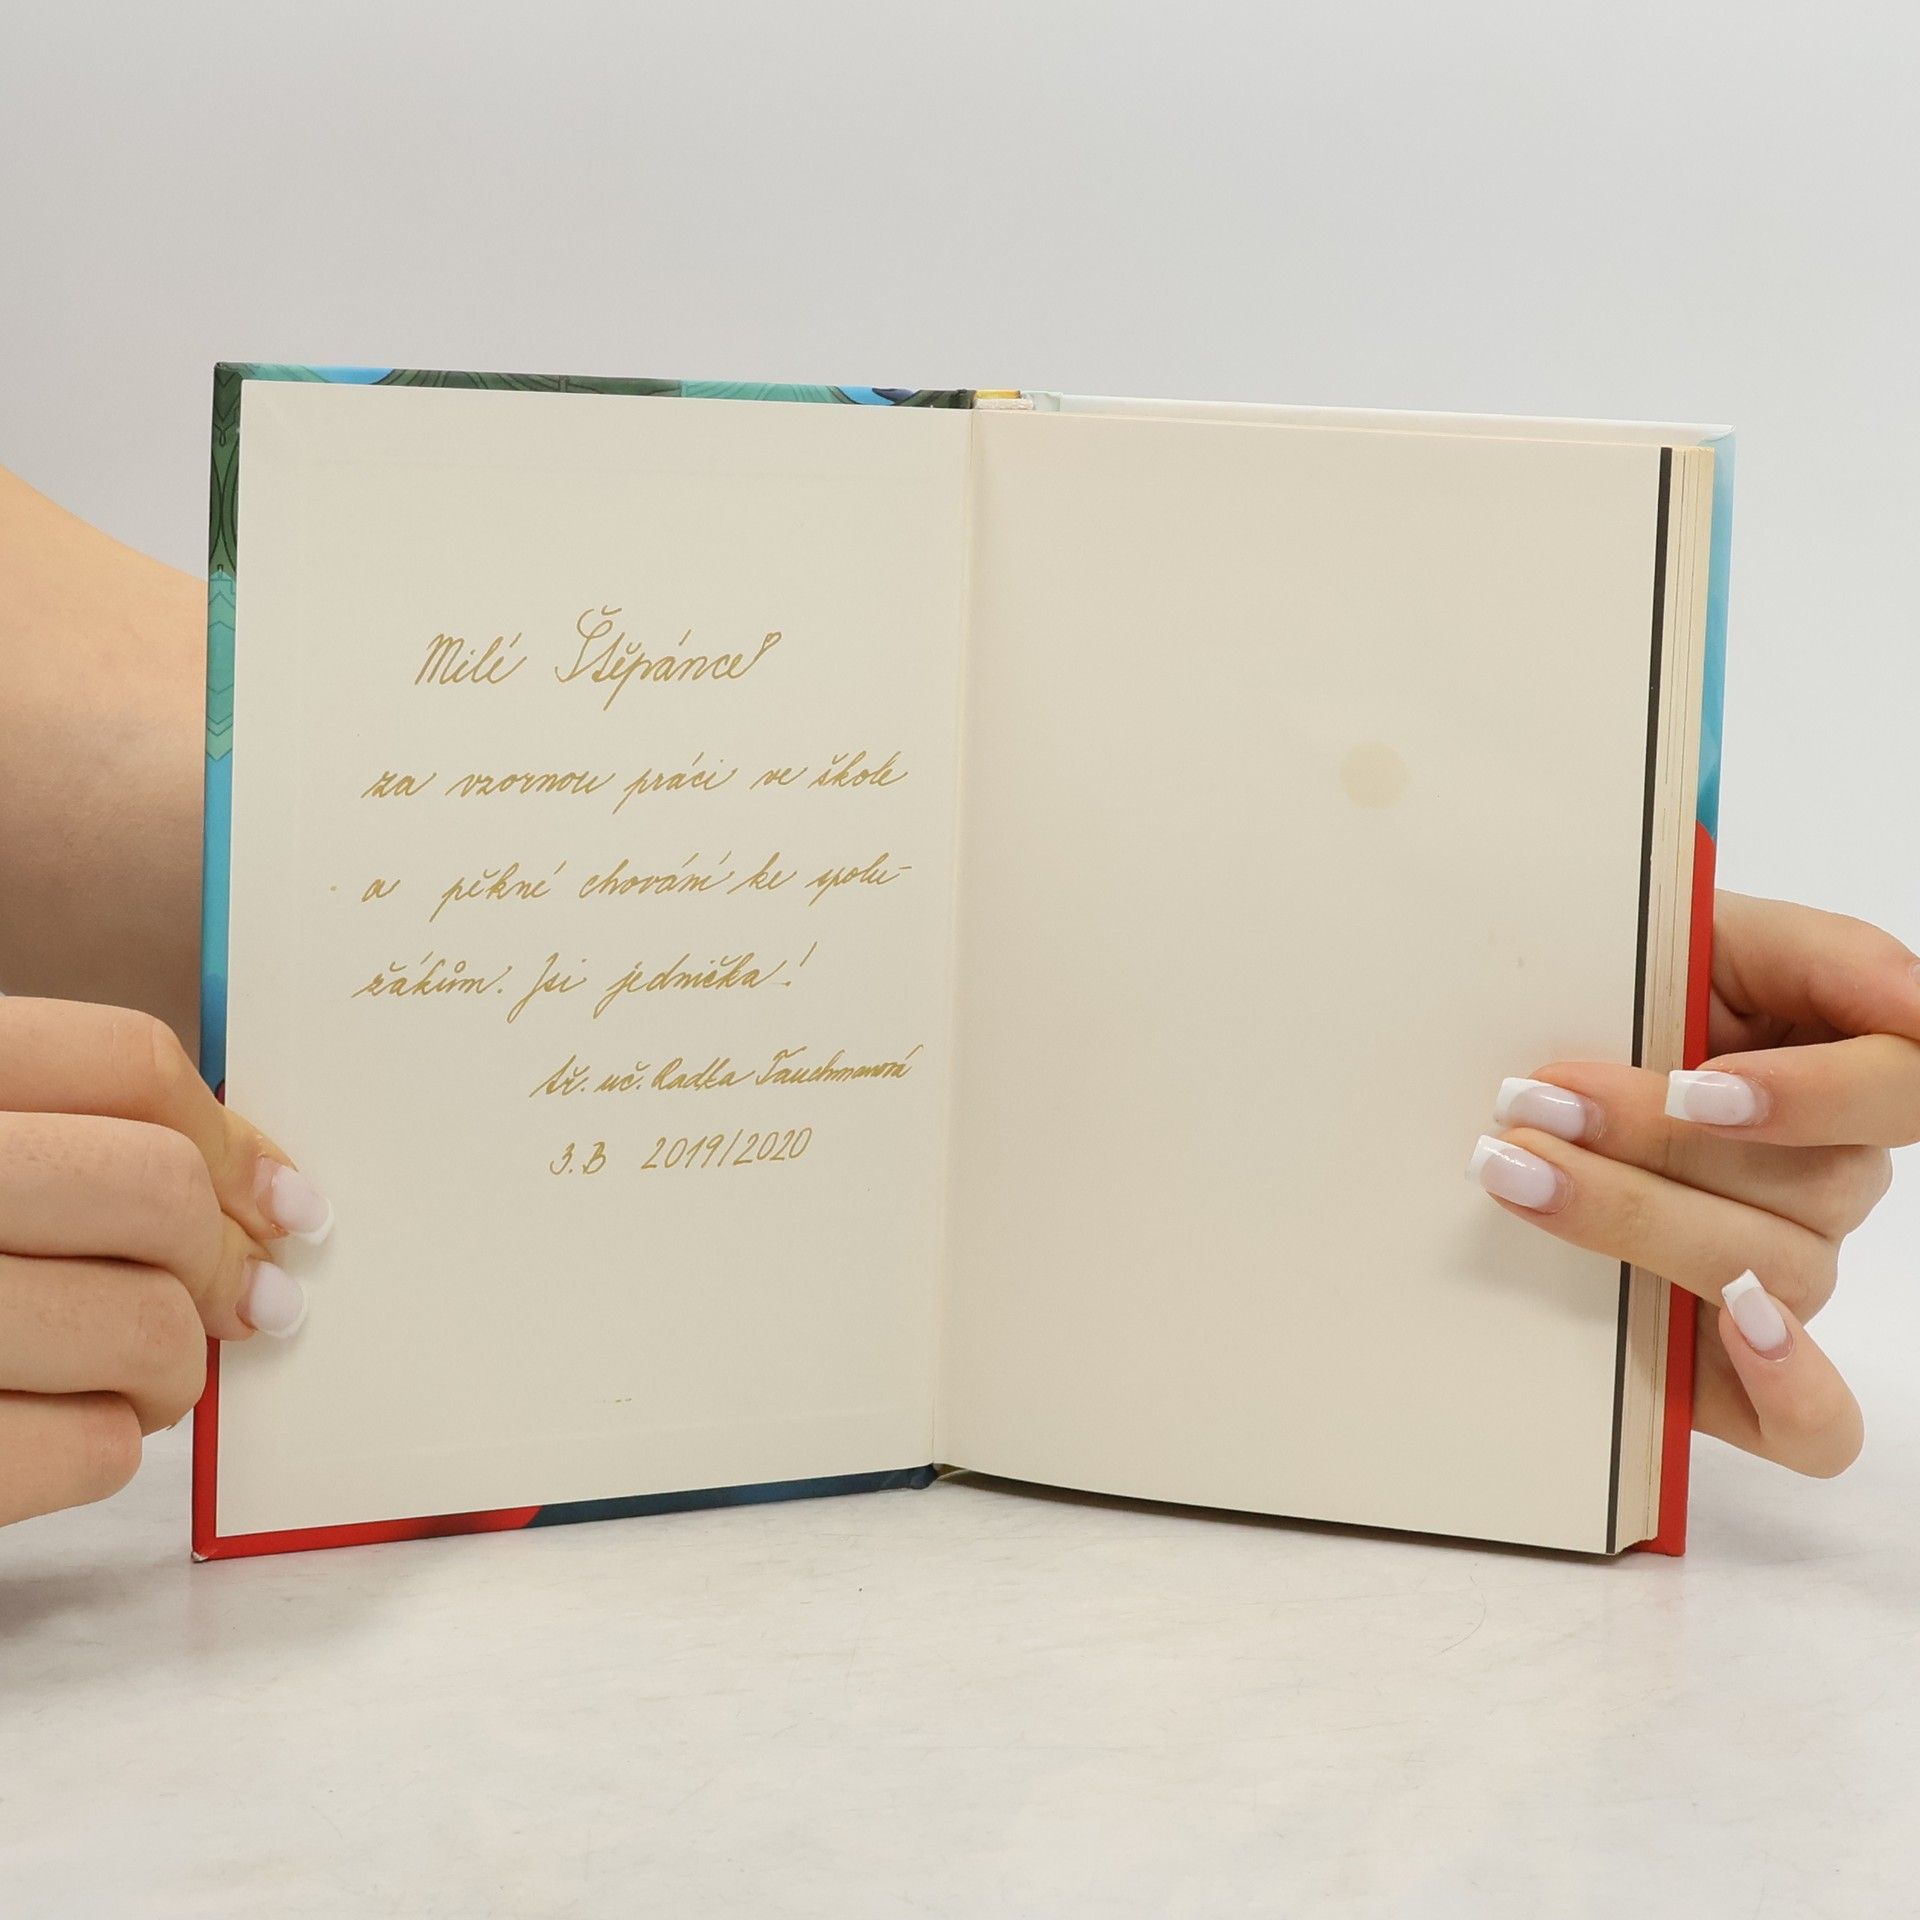 Milé Štěpánce
za vzornou práci ve škole
a pěkné chování ke spolu-
žákům. Jsi jednička!
tř. uč. Radka Tauchmanová
3.B 2019/2020